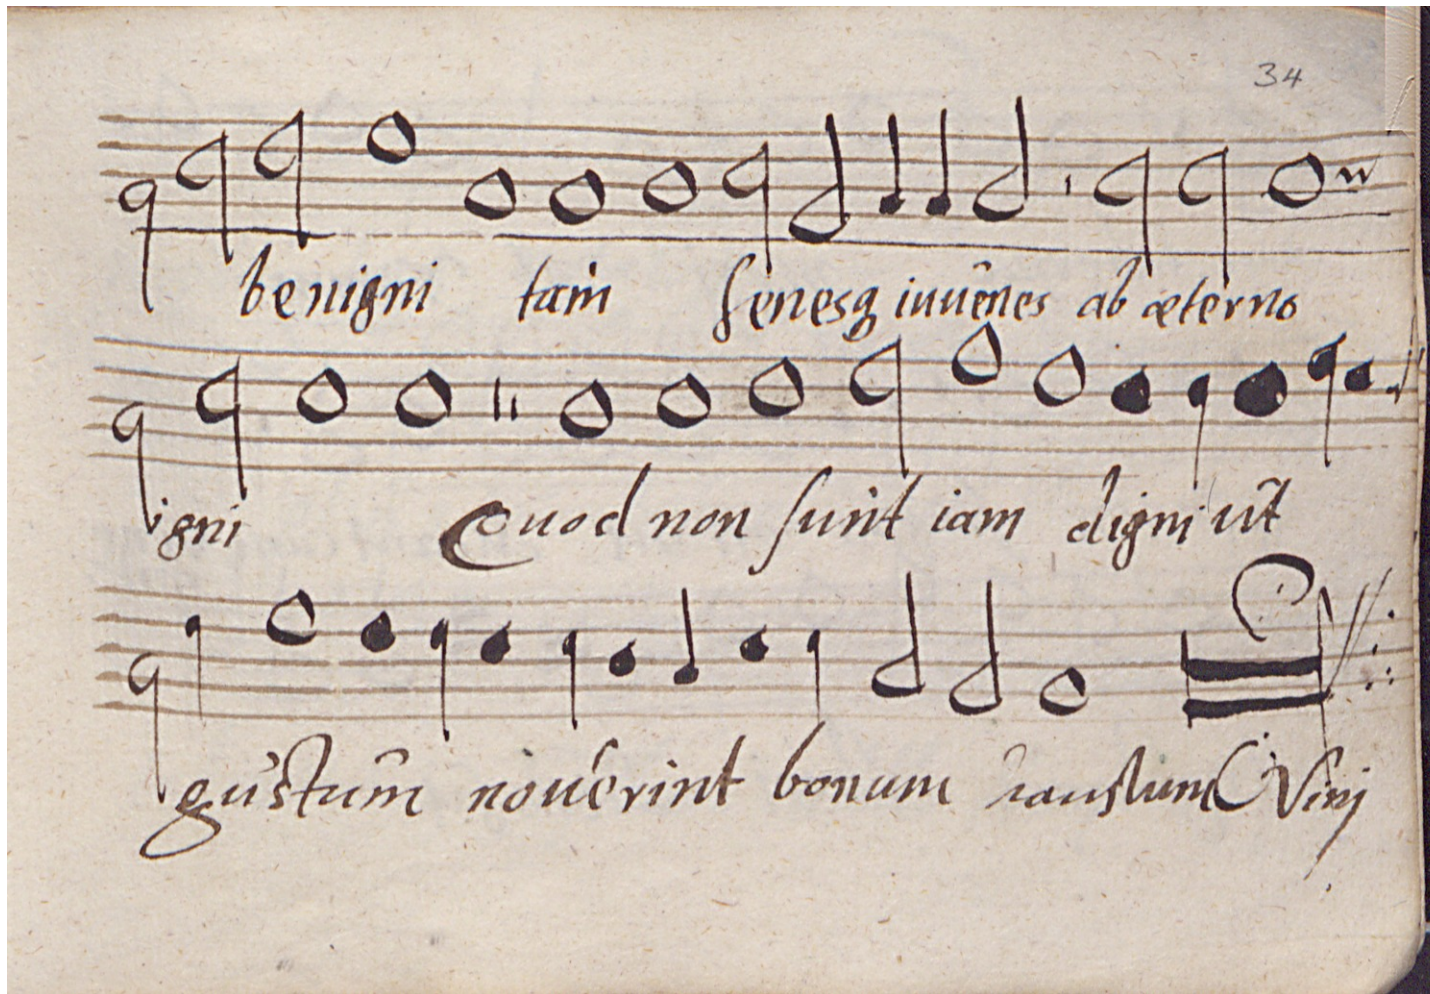 34
benigni tam senesq iuuēnes ab æterno
igni Quod non sunt iam digni ut
gustum nouerint bonum Vini